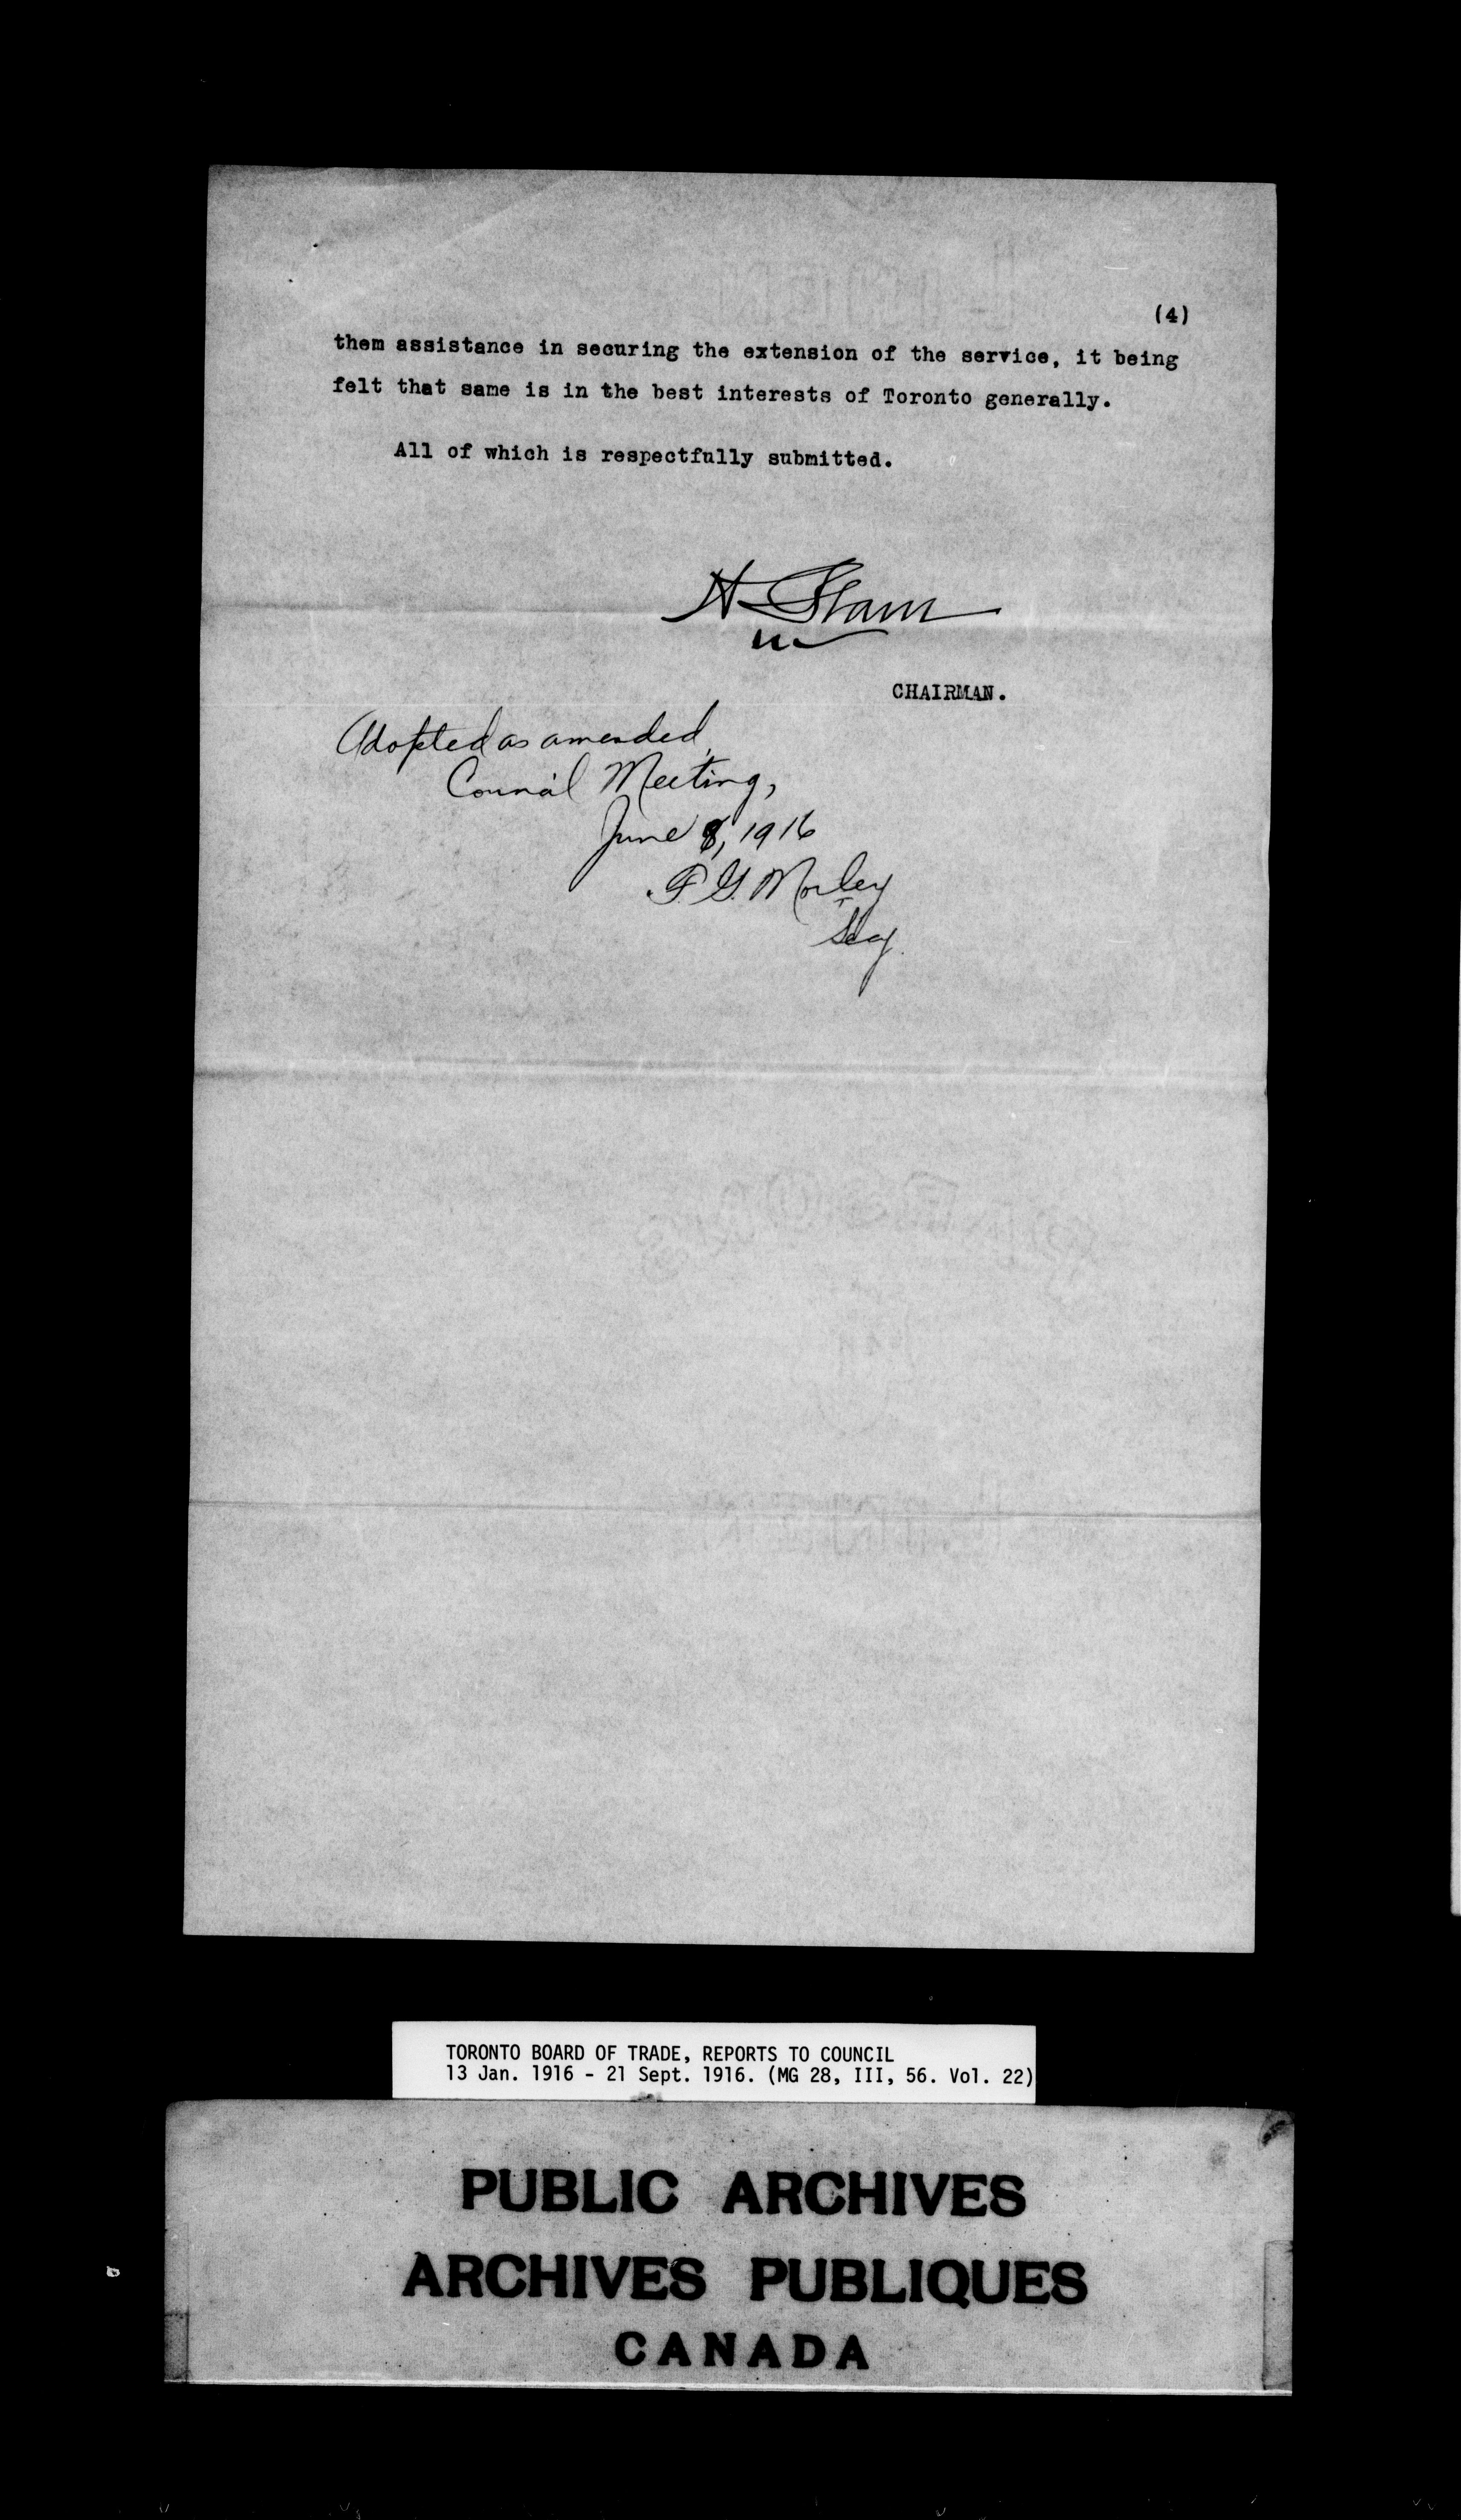 (4)
them assistance in securing the extension of the service, it being
felt that same is in the best interests of Toronto generally.
All of which is respectfully submitted.
CHAIRMAN.
Adopted as amended,
Council Meeting,
June 8, 1916
F. G. Morley
Secy.
TORONTO BOARD OF TRADE, REPORTS TO COUNCIL
13 Jan. 1916 - 21 Sept. 1916. (MG 28, III, 56. Vol. 22)
PUBLIC ARCHIVES
ARCHIVES PUBLIQUES
CANADA